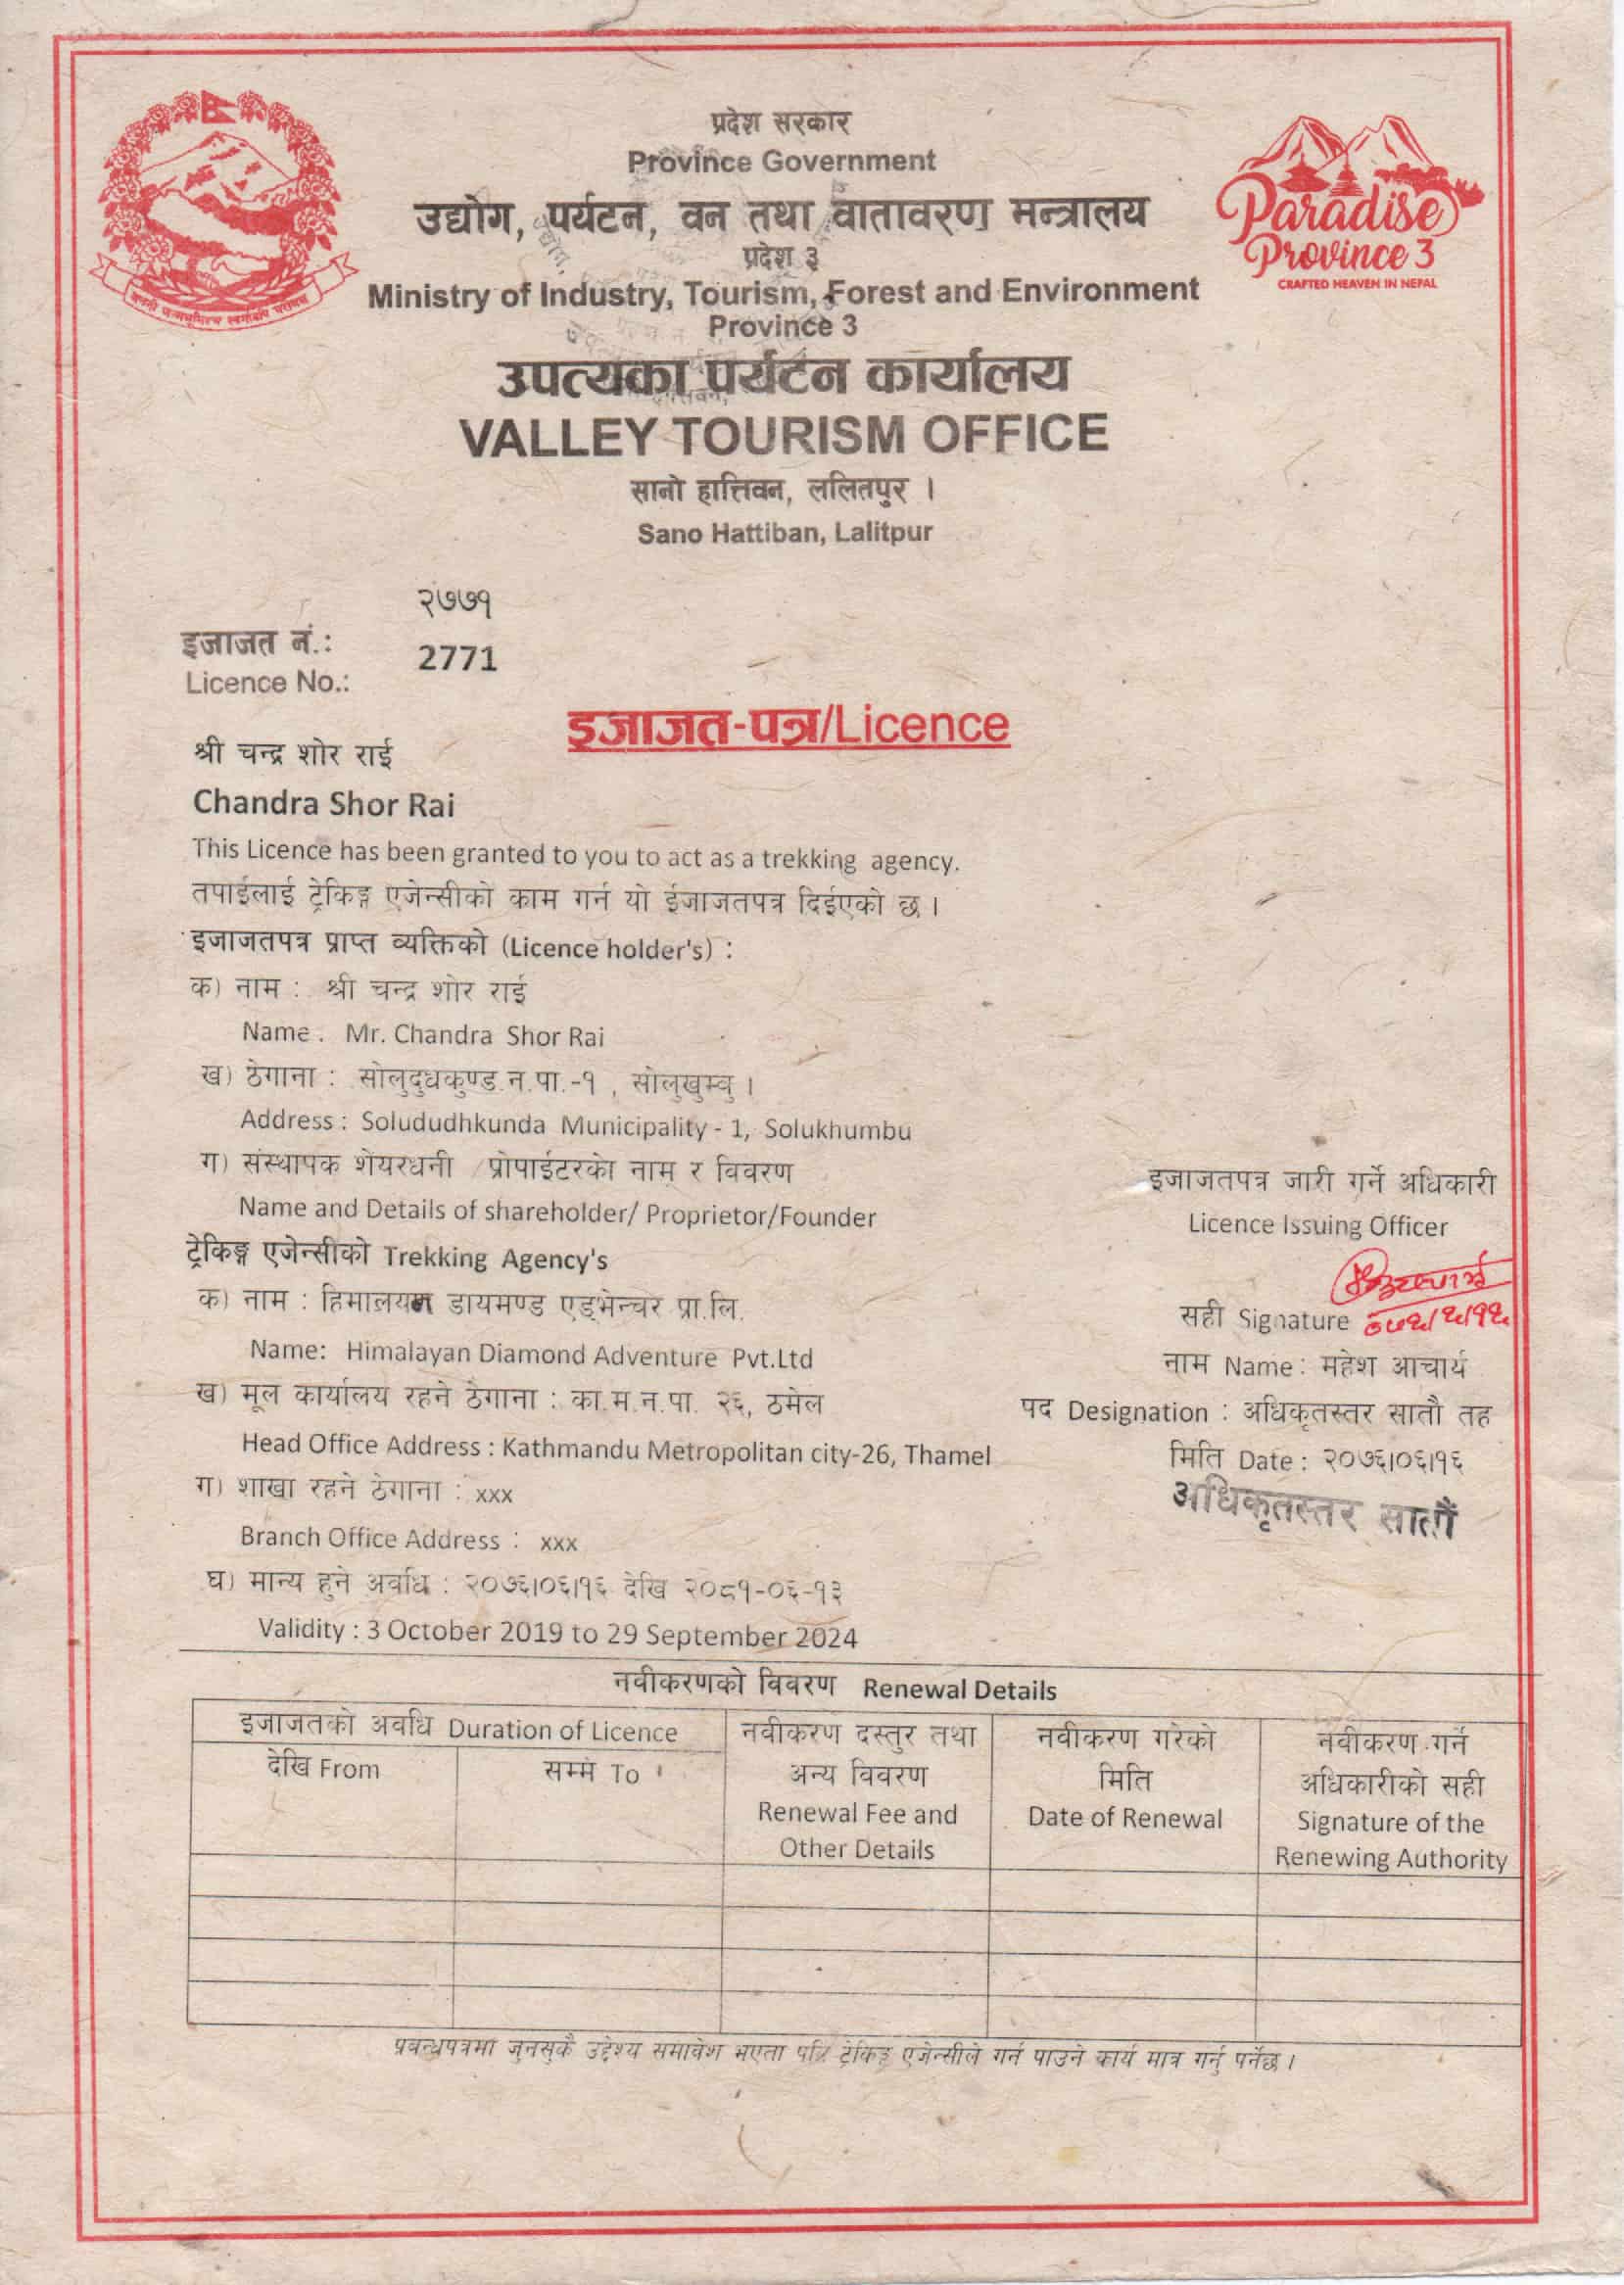 प्रदेश सरकार
Province Government
उद्योग, पर्यटन, वन तथा वातावरण मन्त्रालय
प्रदेश ३
Ministry of Industry, Tourism, Forest and Environment
Province 3
उपत्यका पर्यटन कार्यालय
VALLEY TOURISM OFFICE
सानो हात्तिवन, ललितपुर ।
Sano Hattiban, Lalitpur
Paradise
Province 3
CRAFTED HEAVEN IN NEPAL
२७७१
इजाजत नं.:
2771
Licence No.:
इजाजत-पत्र/Licence
श्री चन्द्र शोर राई
Chandra Shor Rai
This Licence has been granted to you to act as a trekking agency.
तपाईलाई ट्रेकिङ्ग एजेन्सीको काम गर्न यो ईजाजतपत्र दिईएको छ ।
इजाजतपत्र प्राप्त व्यक्तिको (Licence holder's) :
क) नाम : श्री चन्द्र शोर राई
Name . Mr. Chandra Shor Rai
ख) ठेगाना : सोलुदुधकुण्ड न.पा.-१ , सोलुखुम्वु ।
Address : Solududhkunda Municipality - 1, Solukhumbu
ग) संस्थापक शेयरधनी /प्रोपाईटरको नाम र विवरण
Name and Details of shareholder/ Proprietor/Founder
ट्रेकिङ्ग एजेन्सीको Trekking Agency's
क) नाम : हिमालयन डायमण्ड एड्भेन्चर प्रा.लि.
Name: Himalayan Diamond Adventure Pvt.Ltd
ख) मूल कार्यालय रहने ठेगाना : का.म.न.पा. २६, ठमेल
Head Office Address : Kathmandu Metropolitan city-26, Thamel
ग) शाखा रहने ठेगाना : xxx
Branch Office Address : xxx
घ) मान्य हुने अवधि : २०७६।०६।१६ देखि २०८१-०६-१३
Validity : 3 October 2019 to 29 September 2024
इजाजतपत्र जारी गर्ने अधिकारी
Licence Issuing Officer
सही Signature
नाम Name : महेश आचार्य
पद Designation : अधिकृतस्तर सातौ तह
मिति Date : २०७६।०६।१६
अधिकृतस्तर सातौं
नवीकरणको विवरण Renewal Details
इजाजतको अवधि Duration of Licence
देखि From
सम्म To
नवीकरण दस्तुर तथा
अन्य विवरण
Renewal Fee and
Other Details
नवीकरण गरेको
मिति
Date of Renewal
नवीकरण गर्ने
अधिकारीको सही
Signature of the
Renewing Authority
प्रबन्धपत्रमा जुनसुकै उद्देश्य समावेश भएता पनि ट्रेकिङ्ग एजेन्सीले गर्न पाउने कार्य मात्र गर्नु पर्नेछ ।